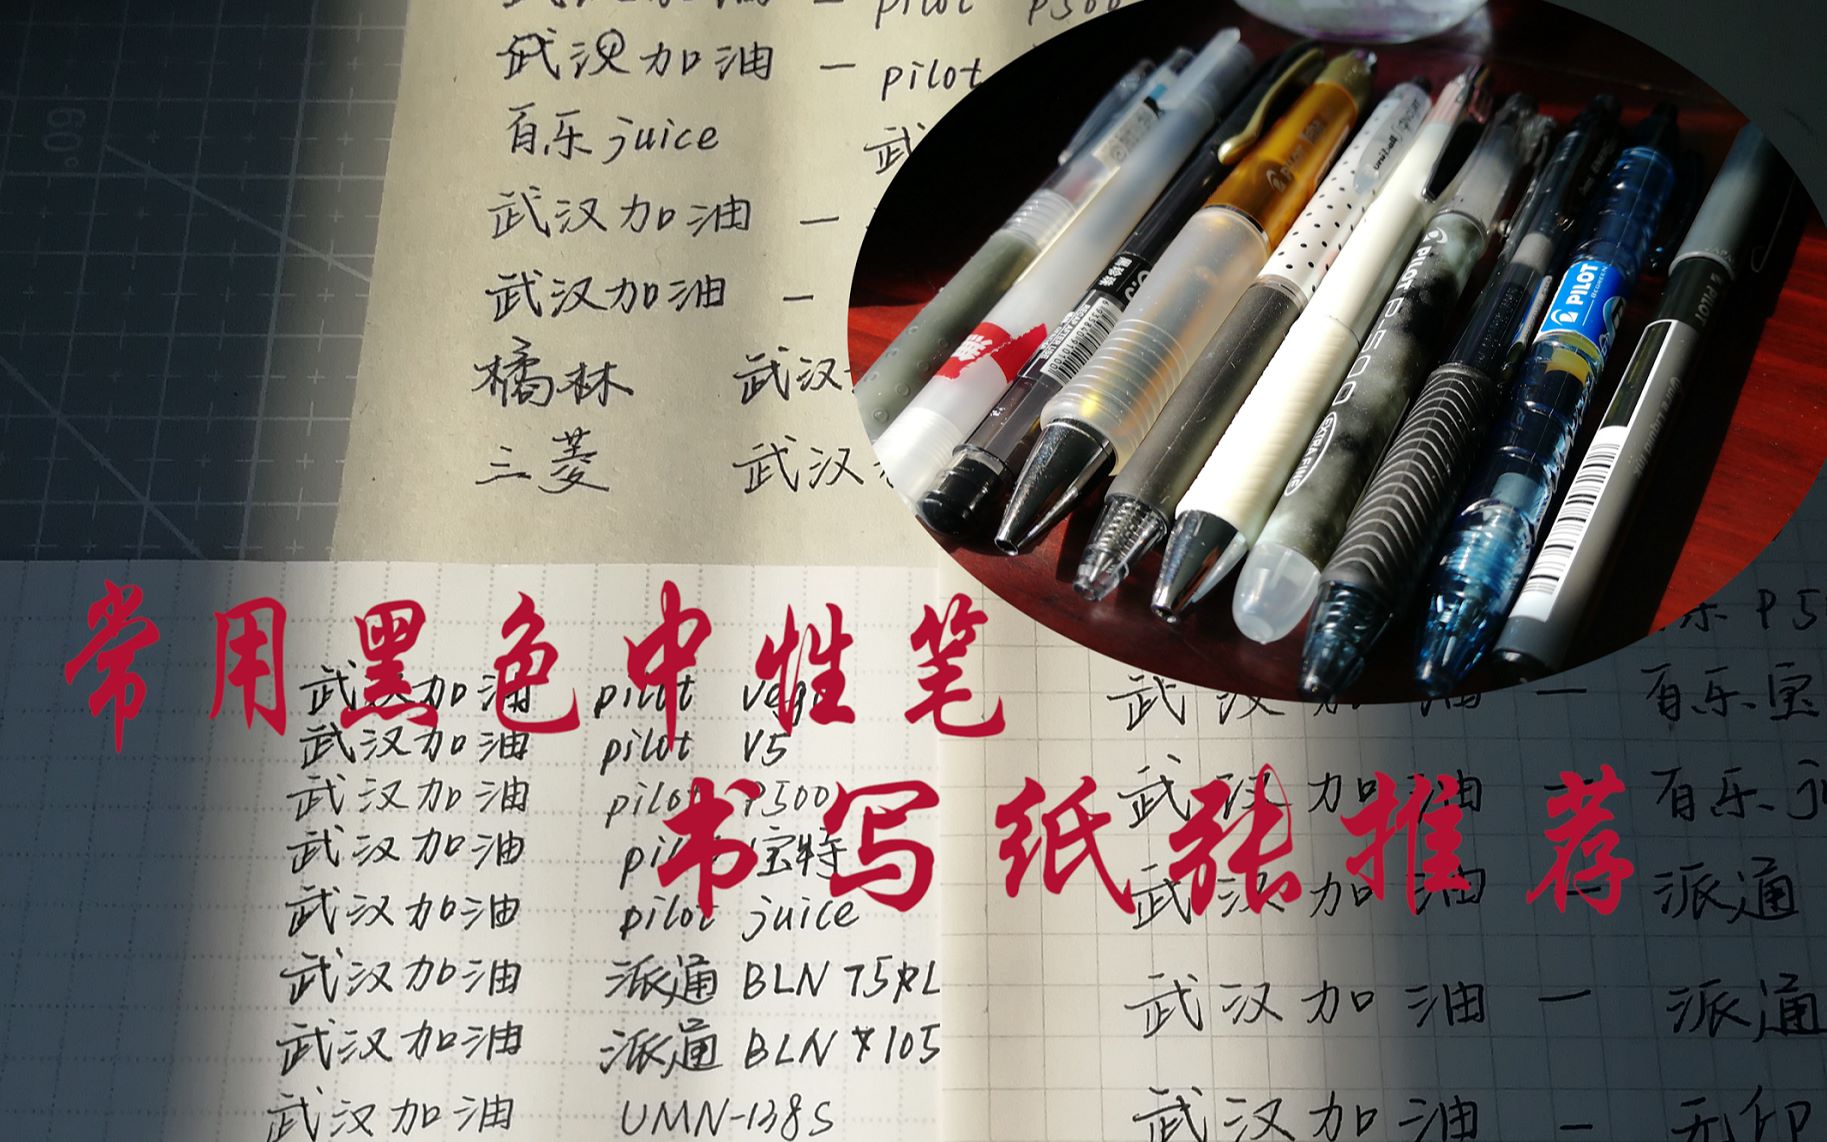 武汉加油 - pilot P500
武汉加油 - pilot
百乐 juice 武
武汉加油 -
武汉加油 -
橘林 武汉
三菱 武汉
uniball
PILOT P-500
EXTRA FINE
PILOT
PILOT
常用黑色中性笔
书写纸张推荐
武汉加油 pilot vega
武汉加油 pilot V5
武汉加油 pilot P500
武汉加油 pilot 宝特
武汉加油 pilot juice
武汉加油 派通 BLN 75
武汉加油 派通 BLN 105
武汉加油 UMN-138S
乐 P5
武汉加油 - 百乐宝
武汉加油 - 百乐 j
武汉加油 - 派通
武汉加油 - 派通
武汉加油 - 无印
60